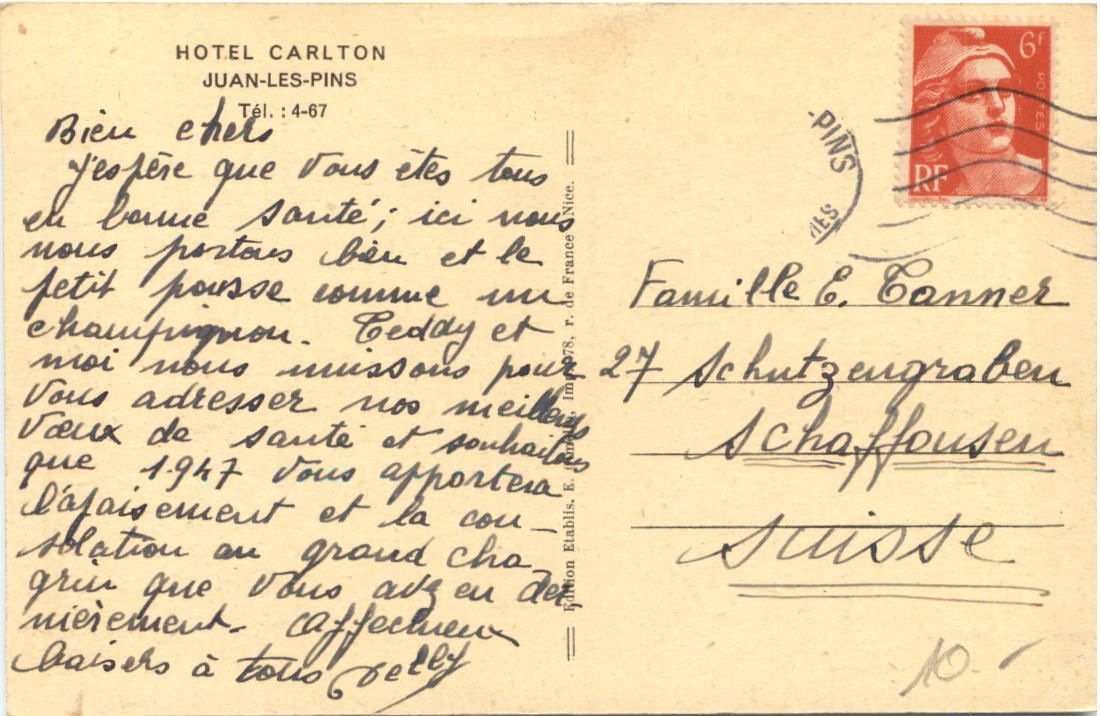 HOTEL CARLTON
JUAN-LES-PINS
Tél. : 4-67
Bien chers
J'espère que vous êtes tous
en bonne santé; ici nous
nous portons bien et le
petit pousse comme un
champignon. Teddy et
moi nous unissons pour
vous adresser nos meilleurs
vœux de santé et souhaitons
que 1947 vous apportera
l'apaisement et la con-
solation au grand cha-
grin que vous avez eu der-
nièrement. Affectueux
baisers à tous
Edition Etablis. E. Imp. 78, r. de France, Nice.
6f
POSTES
RF
-PINS
MES
Famille E. Tanner
27 Schutzengraben
Schaffousen
Suisse
10.-